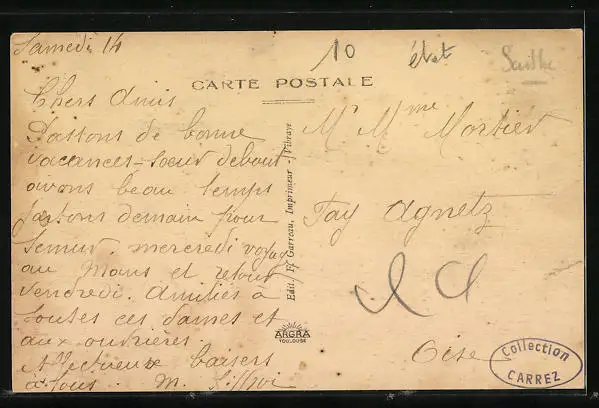 Samedi 14
10
état
Sarthe
CARTE POSTALE
Chers Amis
Passons de bonne
vacances - sœur debout
avons beau temps
partons demain pour
Semur. mercredi voyage
au Mans et retour
vendredi. Amitiés à
toutes ces dames et
aux ouvrières.
Affectueux baisers
à tous. M.
Edit. F. Garreau, Imprimeur - Vibraye
ARGRA
TOULOUSE
Mr Mme Mortier
Fay Agnetz
Oise
Collection
CARREZ